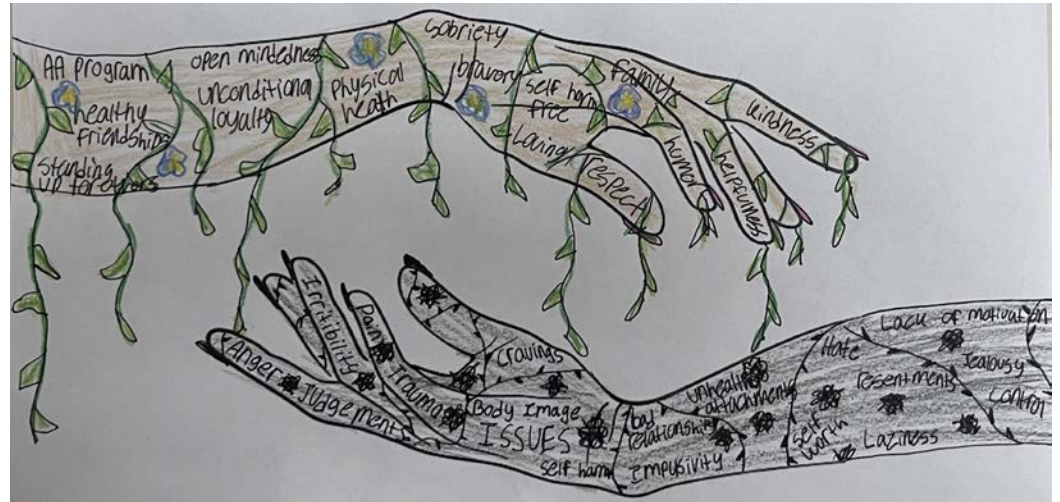 AA program
healthy
friendships
standing
up for others
open mindedness
unconditional
loyalty
physical
heath
sobriety
bravory
self harm
free
Loving
respect
family
humor
helpfulness
kindness
Anger
Judgements
Irritibility
Pain
Trauma
Cravings
Body Image
ISSUES
self harm
bad
relationships
Impusivity
unhealthy
attachments
Hate
self
worth
Lack of motivation
resentments
Jealousy
control
Laziness